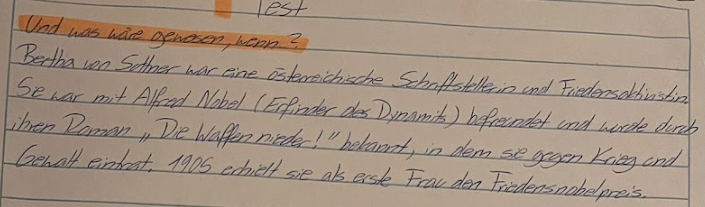 Test
Und was wäre gewesen, wenn?
Bertha von Suttner war eine österreichische Schriftstellerin und Friedensaktivistin.
Sie war mit Alfred Nobel (Erfinder des Dynamits) befreundet und wurde durch
ihren Roman „Die Waffen nieder!" bekannt, in dem sie gegen Krieg und
Gewalt eintrat. 1905 erhielt sie als erste Frau den Friedensnobelpreis.